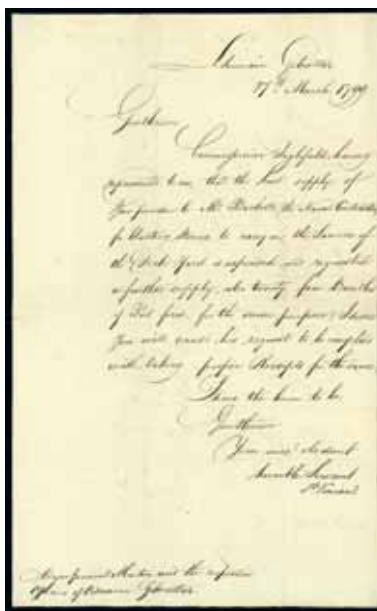 Gibraltar
17th March 1799
Gentlemen
Commissioner Inglefield, having
represented to me, that the last supply of
Gunpowder to Mr the Naval Contractor
for Stones to carry on the Service of
the Dock Yard is expended and requested
a further supply, also twenty four
of for the same purpose; I desire
You will cause his request to be complied
with taking proper Receipts for the same
I have the honor to be
Gentlemen
Your most obedient
humble Servant
St Vincent
Major General Martin and the respective
Officers of Ordnance Gibraltar